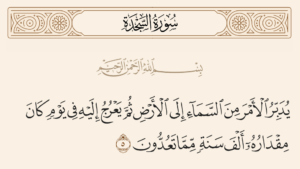 سُورَةُ السَّجْدَةِ
بِسْمِ اللَّهِ الرَّحْمَٰنِ الرَّحِيمِ
يُدَبِّرُ الْأَمْرَ مِنَ السَّمَاءِ إِلَى الْأَرْضِ ثُمَّ يَعْرُجُ إِلَيْهِ فِي يَوْمٍ كَانَ
مِقْدَارُهُ أَلْفَ سَنَةٍ مِمَّا تَعُدُّونَ ٥